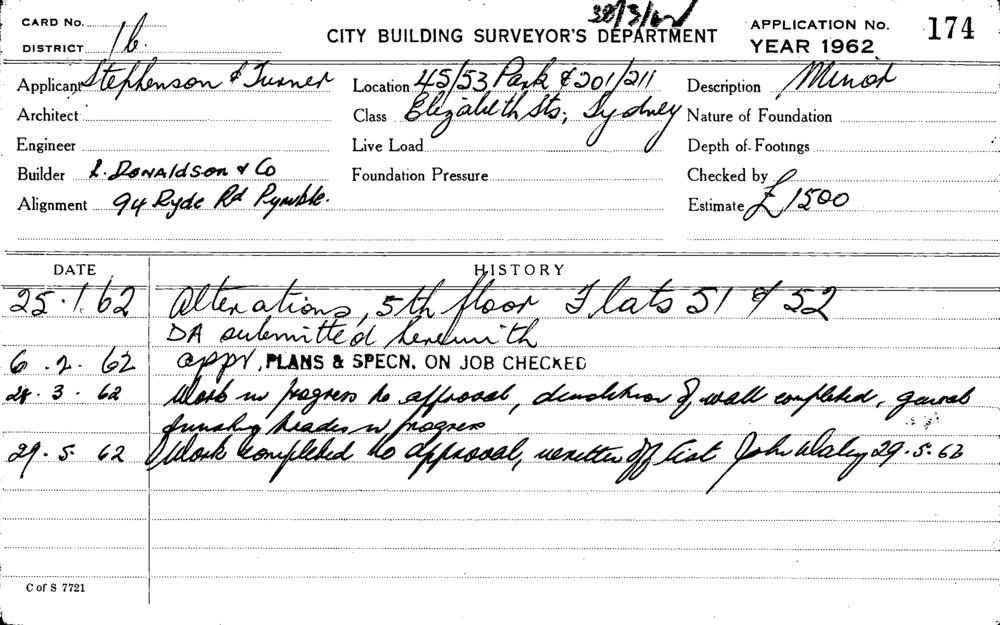 30/3/62
CARD No.
DISTRICT 16.
CITY BUILDING SURVEYOR'S DEPARTMENT
APPLICATION No. 174
YEAR 1962
Applicant Stephenson & Turner
Location 45/53 Park & 201/211
Description Minor
Architect
Class Elizabeth Sts, Sydney
Nature of Foundation
Engineer
Live Load
Depth of Footings
Builder L. Donaldson & Co
Foundation Pressure
Checked by
Alignment 94 Ryde Rd Pymble.
Estimate £1500
DATE HISTORY
25.1.62 Alterations, 5th floor Flats 51 & 52
DA submitted herewith
6.2.62 appr, PLANS & SPECN. ON JOB CHECKED
28.3.62 Work in progress to approval, demolition of wall completed, general
finishing trades in progress
29.5.62 Work completed to approval, written off list John Daley 29.5.62
C of S 7721